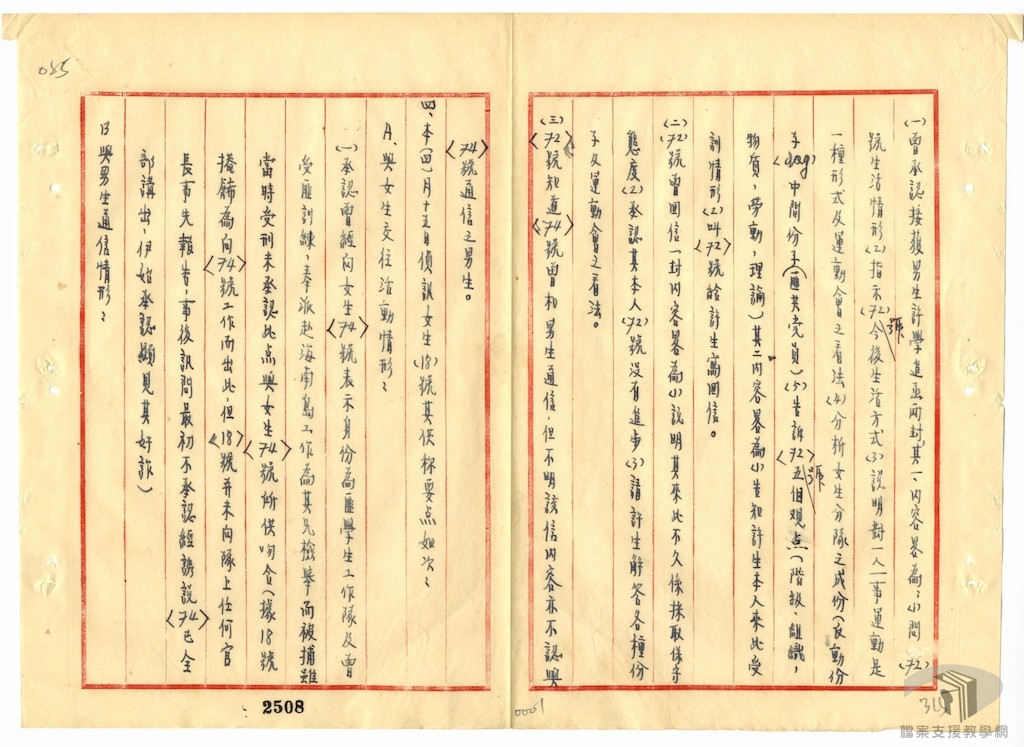 (一)曾承認接獲男生許學進函兩封,其一、內容畧為:(1)問〈72〉
號生活情形(2)指示〈72〉號今後生活方式(3)說明對一人一事運動是
一種形式及運動會之看法(4)分析女生分隊之成份(反動份
子(dog)中間份子(匪共党員)(5)告訴〈72〉號五個观点(階級,組織,
物质,勞動,理論)其二內容畧為(1)告知許生本人來此受
訓情形(2)叫〈72〉號給許生寫回信。
(二)〈72〉號曾回信一封內容畧為(1)說明其來此不久係採取保守
態度(2)承認其本人〈72〉號沒有進步(3)請許生解答各種份
子及運動會之看法。
(三)〈72〉號知道〈74〉號曾和男生通信,但不明該信內容亦不認與
〈74〉號通信之男生。
四、本(四)月十五日偵訊女生〈18〉號其供稱要点如次:
A、與女生交往活動情形:
(一)承認曾經向女生〈74〉號表示身份為匪學生工作隊及曾
受匪訓練,奉派赴海南島工作為其兄檢舉而被捕雖
當時受刑未承認此点與女生〈74〉號所供吻合(據18號
掩飾為向〈74〉號工作而出此,但〈18〉號并未向隊上任何官
長事先報告,事後訊問最初不承認經誘說〈74〉已全
部講出,伊始承認顯見其奸詐)
B與男生通信情形:
085
2508
0001
檔案支援教學網